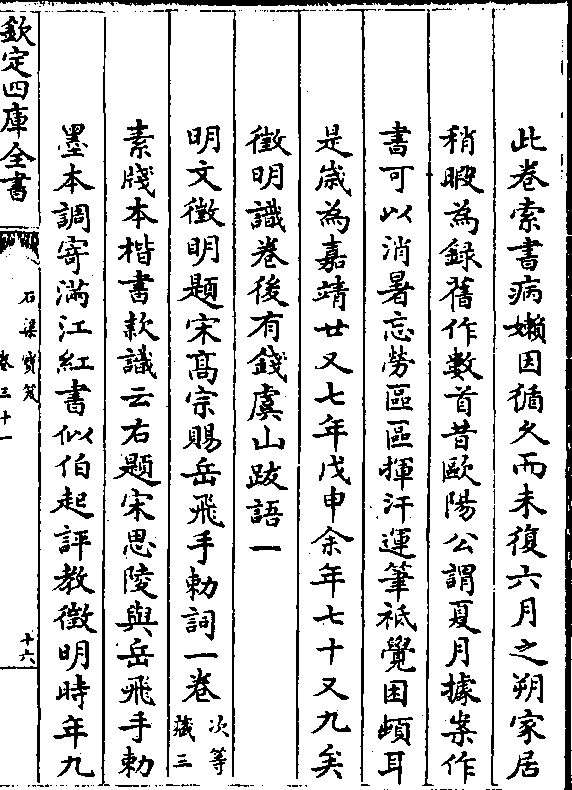 此卷索書病嬾因循久而未復六月之朔家居
稍暇為録舊作數首昔歐陽公謂夏月據案作
書可以消暑忘勞區區揮汗運筆祗覺困頓耳
是歲為嘉靖廿又七年戊申余年七十又九矣
徴明識卷後有錢虞山跋語一
明文徴明題宋髙宗賜岳飛手勅詞一卷次等
藏三
素牋本楷書款識云右題宋思陵與岳飛手勅
墨本調寄滿江紅書似伯起評教徴明時年九
欽定四庫全書
石渠寶笈
卷三十一
十六